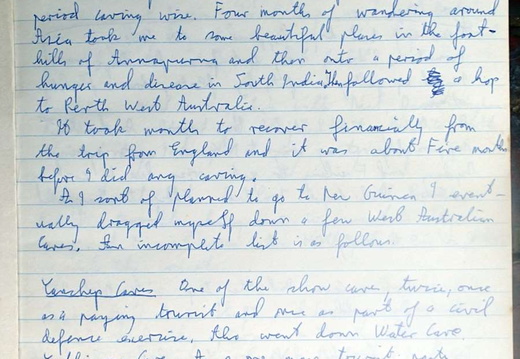 period caving wise. Four months of wandering around
Asia took me to some beautiful places in the foot-
hills of Annapurna and then onto a period of
hunger and disease in South India. followed a hop
to Perth West Australia.
It took months to recover financially from
the trip from England and it was about Five months
before I did any caving.
As I sort of planned to go to New Guinea I event-
ually dragged myself down a few West Australian
Caves. An incomplete list is as follows.
Yanchep Caves One of the show caves, twice, once
as a paying tourist and once as part of a civil
defence exercise. Also went down Water Cave.